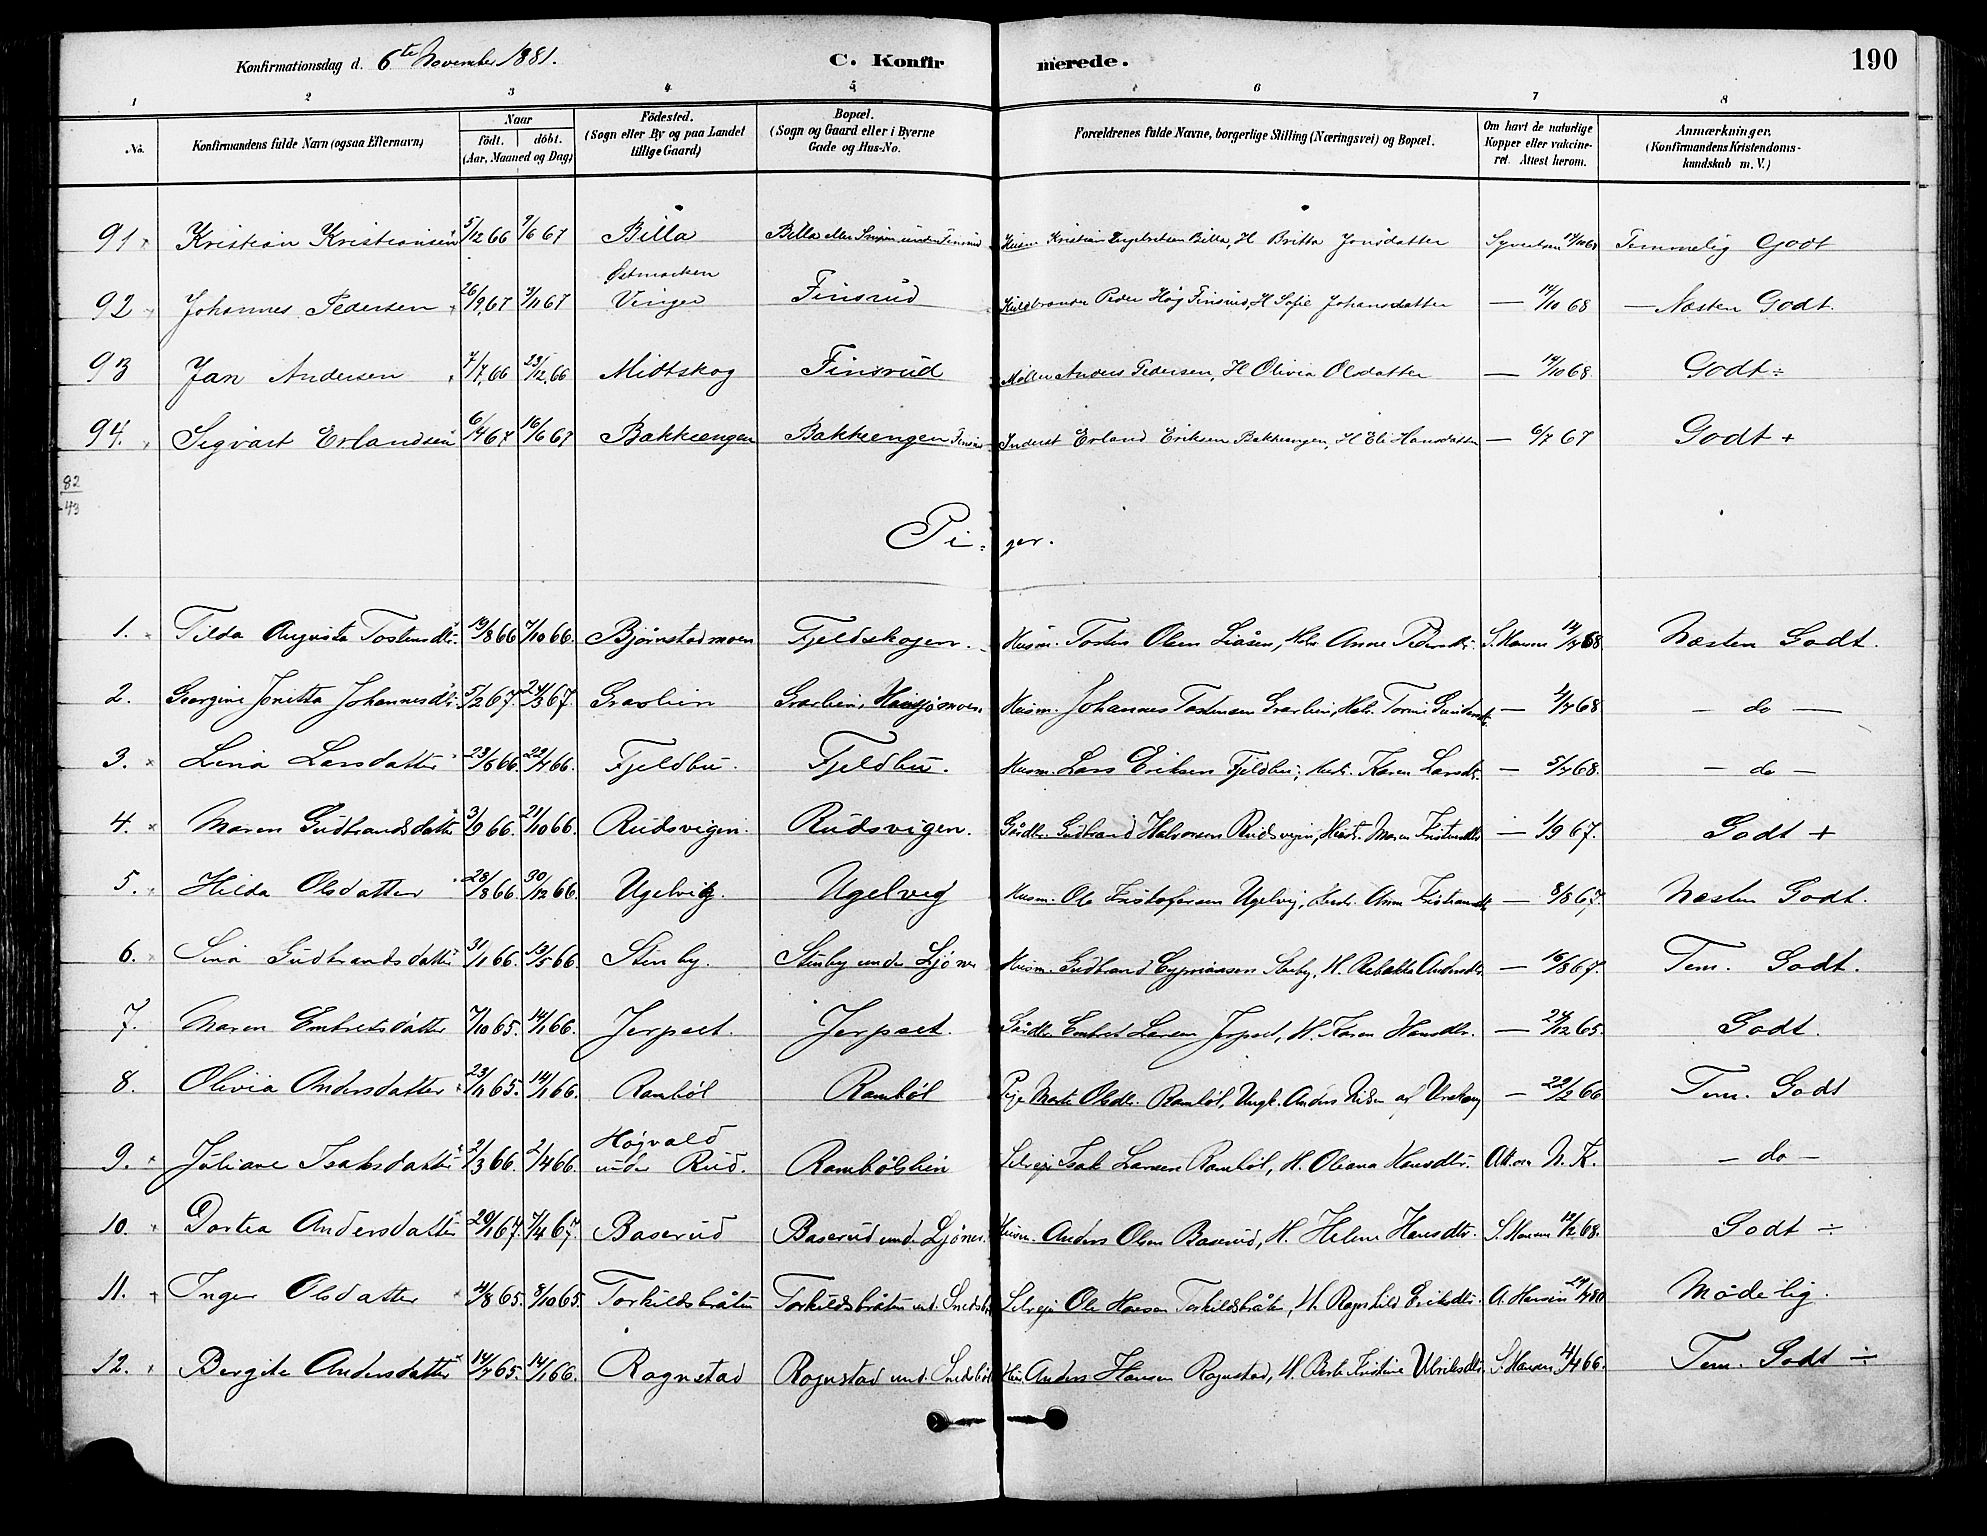 Konfirmationsdag d. 6te November 1881. C. Konfirmerede. 190
1 2 3 4 5 6 7 8
No. Konfirmandens fulde Navn (ogsaa Efternavn) Naar født. døbt. (Aar, Maaned og Dag) Fødested. (Sogn eller By og paa Landet tillige Gaard) Bopæl. (Sogn og Gaard eller i Byerne Gade og Hus-No. Forældrenes fulde Navne, borgerlige Stilling (Næringsvei) og Bopæl. Om havt de naturlige Kopper eller vakcineret. Attest herom. Anmærkninger. (Konfirmandens Kristendomskundskab m. V.)
91 Kristian Kristiansen 5/12 66 9/6 67 Billa Billa eller under Finsrud Husm Kristian Billa, H Britta Jonsdatter Temmelig Godt
92 Johannes Pedersen 26/9 67 3/11 67 Østmarken Vinger Finsrud Peder Høg Finsrud, H Sofie Johansdatter — 14/10 68 — Næsten Godt.
93 Jan Andersen 7/7 66 23/12 66 Midtskog Finsrud Møller Anders Pedersen, H Olivia Olsdatter — 14/10 68 Godt ÷
94. Sigvart Erlandsen 6/4 67 16/6 67 Bakkeengen Bakkeengen Inderst Erland Eriksen Bakkeengen, H Eli Hansdatter — 6/7 67 Godt +
82
43
Piger.
1. Tilda Augusta Tostensdtr. 19/8 66 7/10 66. Bjørnstadmoen Fjeldskogen. Husm. Tosten Olsen Liåsen, Anne S. Hansen 14/7 68 Næsten Godt.
2. Georgine Jonetta Johannesdtr. 5/2 67. 24/3 67. Gravlien Husm. Johannes Tostensen — 4/7 68 — do —
3. Lina Larsdatter 23/6 66. Fjeldbu. Fjeldbu. Husm. Lars Eriksen Fjeldbu, Karen Larsdtr. — 5/7 68. — do —
4. Maren Gudbrandsdatter 3/9 66. 21/10 66. Rudsvigen. Rudsvigen. Gårdbr. Gudbrand Halvorsen Rudsvigen, Maren — 1/9 67. Godt +
5. Hilda Olsdatter 28/8 66. 30/12 66. Ugelvig. Ugelvig Husm. Ole Kristofersen Ugelvig, Anne — 8/8 67. Næsten Godt.
6. Sina Gudbrandsdatter 31/1 66. 13/5 66. Stenby. Stenby under Ljøner Husm. Gudbrand Cypriansen H. Rebekka Andersdtr. — 16/8 67. Tem. Godt.
7. Maren Embretsdatter 7/10 65. 14/1 66. Jerpset. Jerpset. Gårdbr. Embret Larsen Jerpset, H. Karen Hansdtr. — 24/12 65. Godt.
8. Olivia Andersdatter 23/11 65. 14/1 66. Rambøl Rambøl Pige Marte Olsdtr. Rambøl, Ungk. Anders Nilsen af Urskoug — 22/2 66 Tem. Godt
9. Juliane Isaksdatter 2/3 66. 2/4 66. Højvald under Rud. Rambølshien Selvejer Isak Larsen Rambøl, H. Oleana Hansdtr. Att. om N. K. — do —
10. Dortea Andersdatter 20/1 67. 7/4 67. Baserud Baserud und. Ljøner. Husm. Anders Olsen Baserud, H. Helene Hansdtr. S. Hansen 12/2 68. Godt ÷
11. Inger Olsdatter 4/8 65. 8/10 65. Torkildsbråten Torkildsbråten und. Selvejer Ole Hansen Torkildsbråten, H. Ragnhild Eriksdtr. A. Hansen 24/7 80 Mådelig.
12. Bergite Andersdatter 14/7 65. 14/1 66. Rognstad Rognstad und. Snedsbøl Anders Hansen Rognstad, H. Berte Kristine Ulriksdtr. S. Hansen 4/4 66. Tem. Godt ÷